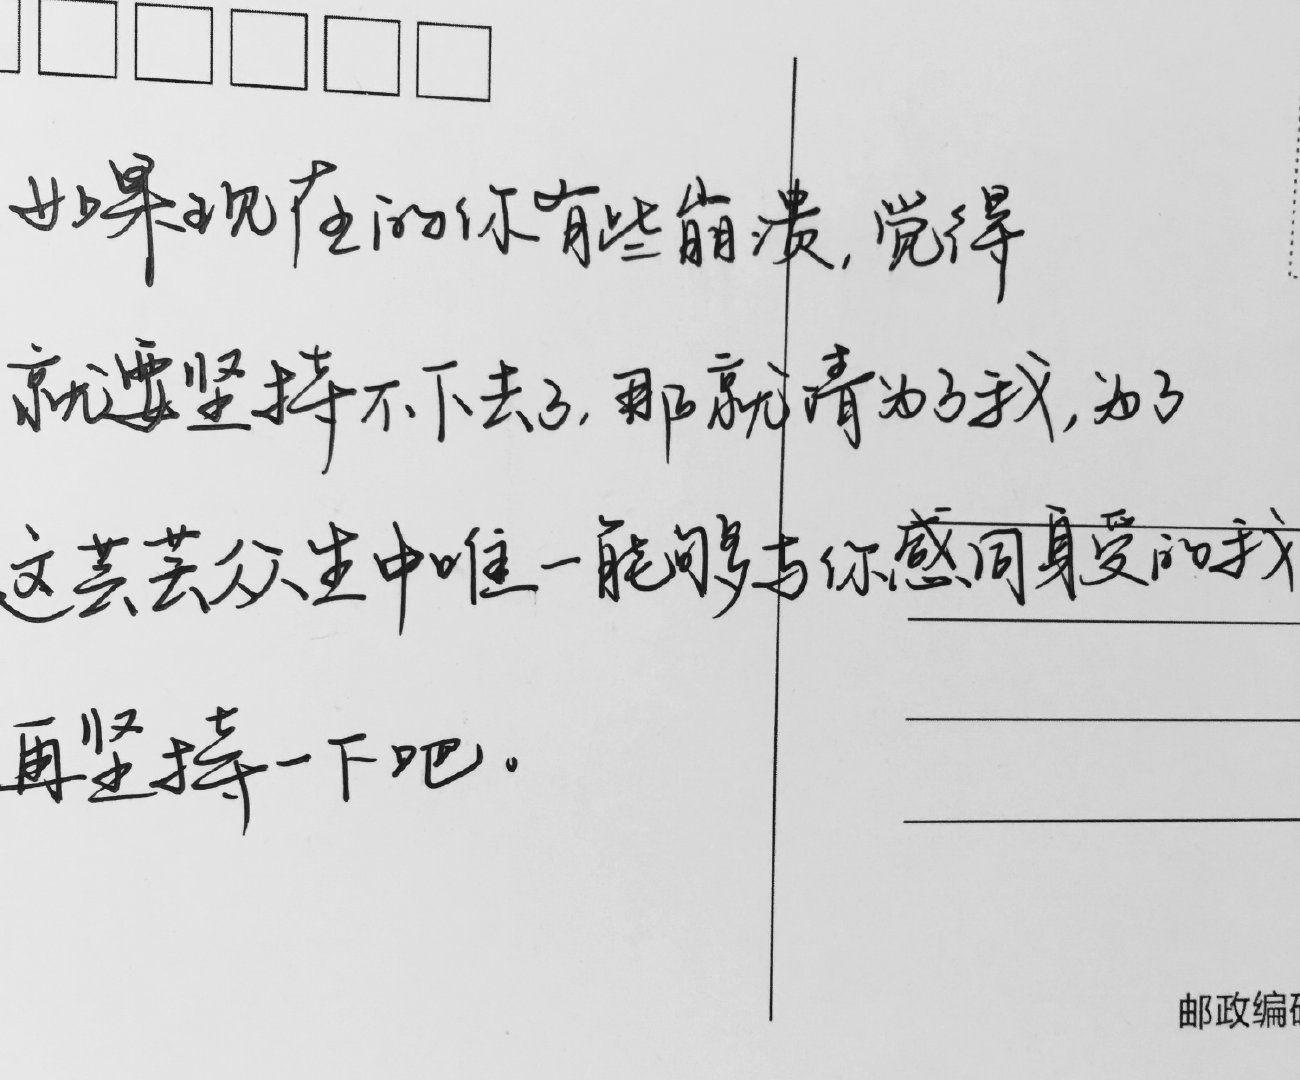 如果现在的你有些崩溃,觉得
就要坚持不下去了,那就请为了我,为了
这芸芸众生中唯一能够与你感同身受的我
再坚持一下吧.
邮政编码